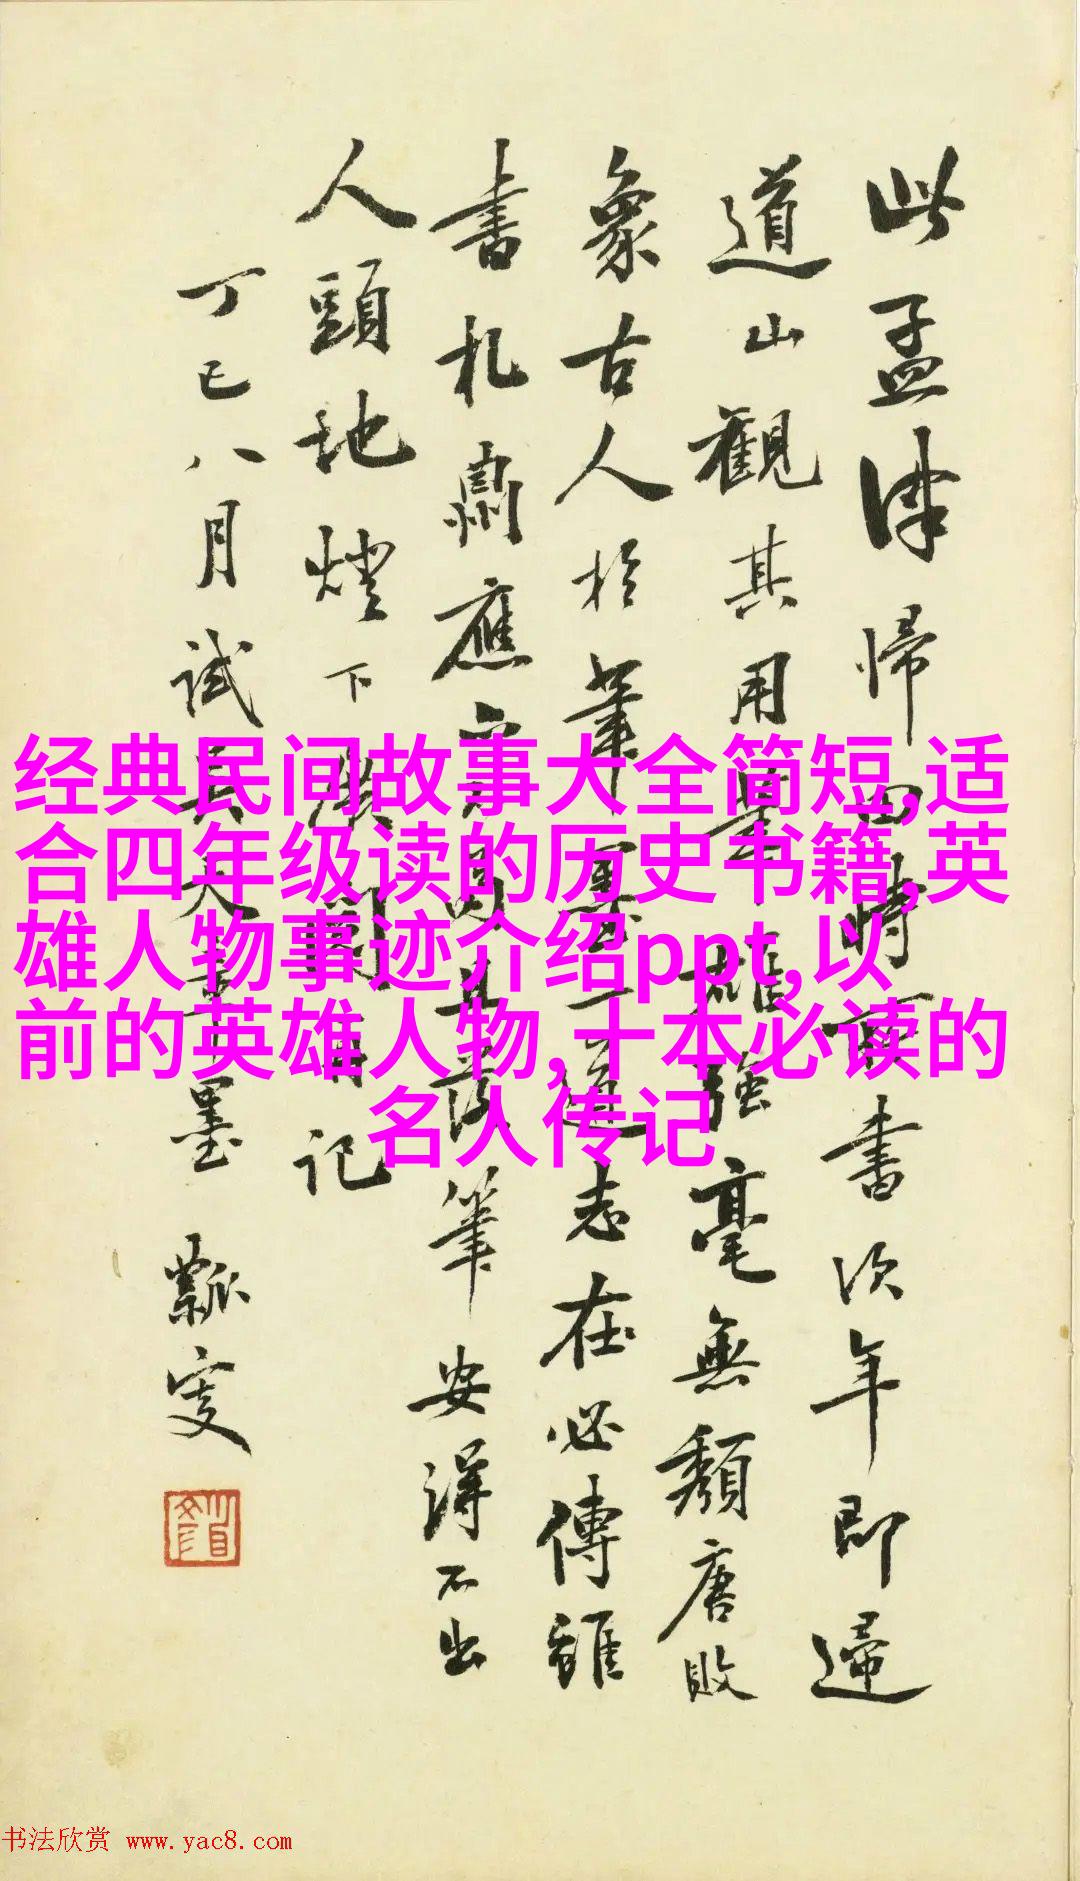 此孟津歸田時所書次年即歸
道山觀其用筆雄強毫無頹唐敗
象古人於筆墨一道志在必傳雖
書札酬應亦落筆安得不出
人頭地燈下記
丁巳八月試墨 瓢叟
经典民间故事大全简短,适
合四年级读的历史书籍,英
雄人物事迹介绍ppt,以
前的英雄人物,十本必读的
名人传记
书法欣赏 www.yac8.com